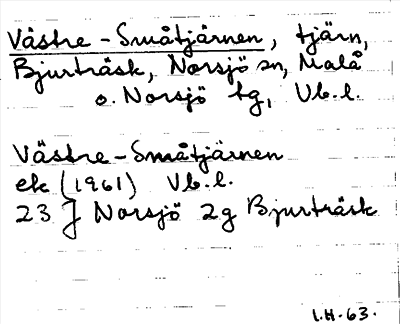 Västre-Småtjärnen, tjärn,
Bjurträsk, Norsjö sn, Malå
o. Norsjö tg, Vb.l.
Västre-Småtjärnen
ek (1961) Vb.l.
23 J Norsjö 2g Bjurträsk
I.H-63.